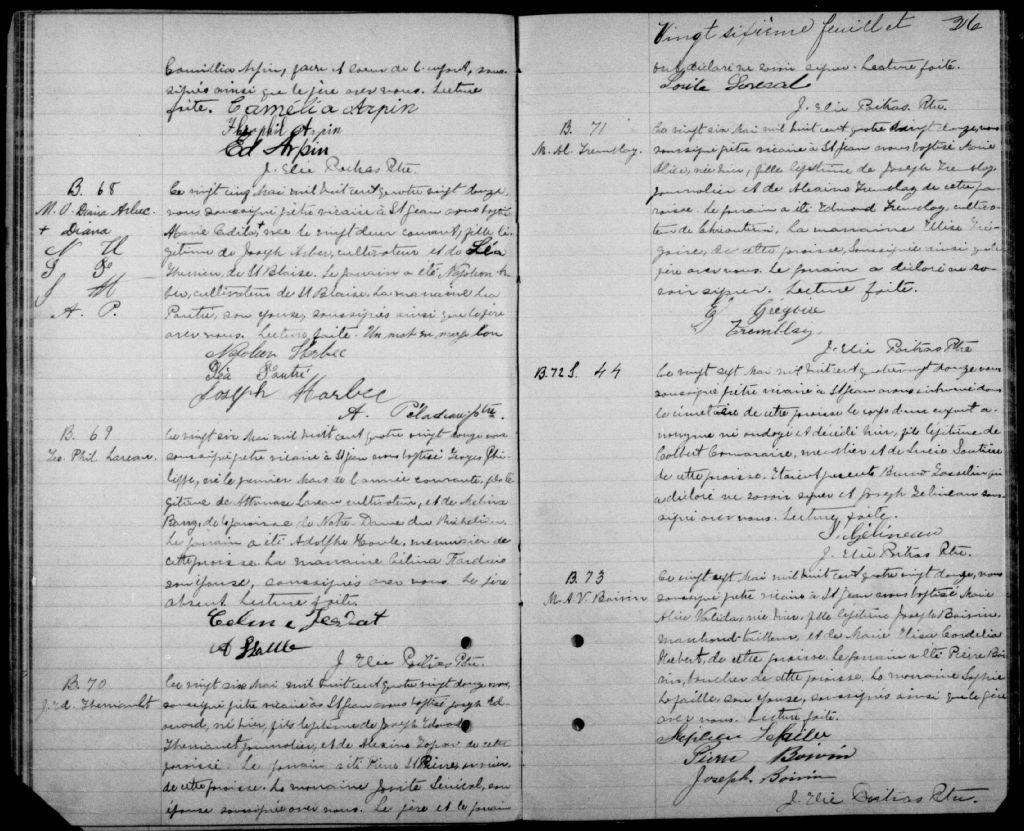 Camillia Arpin, frère et soeur de l'enfant, sous-
signés ainsi que le père avec nous. Lecture
faite. Camelia Arpin
Theophil Arpin
Ed Arpin
J. Elie Poitras Ptre.
B. 68
M. O. Diana Arbec
+ Diana
Le vingt cinq Mai mil huit cent quatre vingt douze,
nous soussigné prêtre vicaire à St Jean avons baptisé
Marie Odila + née le vingt deux courant, fille lé-
gitime de Joseph Arbec, cultivateur et de Léa
Therrien, de St Blaise. Le parrain a été Napoléon Ar-
bec, cultivateur de St Blaise, La marraine Léa
son épouse, soussignés ainsi que le père
avec nous. Lecture faite. Un mot en marge bon
Napoleon Harbec
Léa
Joseph Harbec
A. Péladeau ptre.
B. 69
Geo. Phil. Lareau.
Le vingt six Mai mil huit cent quatre vingt douze nous
soussigné prêtre vicaire à St Jean avons baptisé Georges Phi-
lippe, né le premier Mars de l'année courante, fils lé-
gitime de Lareau cultivateur, et de Melina
de la paroisse de Notre-Dame du Richelieu.
Le parrain a été Adolphe menuisier de
cette paroisse. La marraine Célina
son épouse, soussignés avec nous. Le père
absent Lecture faite.
J. Elie Poitras Ptre.
B. 70
J. Ed. Therriault
Le vingt six Mai mil huit cent quatre vingt douze nous,
soussigné prêtre vicaire à St Jean avons baptisé Joseph Ed-
mond, né hier, fils légitime de Joseph Edmond
journalier, et de de cette
paroisse. Le parrain a été Pierre St Pierre
de cette paroisse. La marraine Josite Sénécal, son
épouse soussignée avec nous. Le père et le parrain
Vingt sixième feuillet 26
ont déclaré ne savoir signer. Lecture faite.
J. Elie Poitras Ptre.
B. 71
M. Al. Tremblay.
Le vingt six Mai mil huit cent quatre vingt douze, nous
soussigné prêtre vicaire à St Jean avons baptisé Marie
Alice, née hier, fille légitime de Joseph Tremblay,
journalier et de Tremblay de cette pa-
roisse. Le parrain a été Edmond Tremblay, cultiva-
teur de Chicoutimi, La marraine Elise Gré-
goire, de cette paroisse, soussignée ainsi que le
père avec nous. Le parrain a déclaré ne sa-
voir signer. Lecture faite.
E Grégoire
Tremblay
J. Elie Poitras Ptre
B. 72 S. 44
Le vingt sept Mai mil huit cent quatrevingt douze nous
soussigné prêtre vicaire à St Jean avons inhumé dans
le cimetière de cette paroisse le corps d'un enfant a-
nonyme né ondoyé et décédé hier, fils légitime de
et de
de cette paroisse. Etaient présents Bruno Gosselin qui
a déclaré ne savoir signer et Joseph Gélineau sous-
signé avec nous. Lecture faite.
J. Gélineau
J. Elie Poitras Ptre.
B. 73
M. A. V. Boivin
Le vingt sept Mai mil huit cent quatre vingt douze, nous
soussigné prêtre vicaire à St Jean avons baptisé Marie
Alice Valida, née hier, fille légitime Joseph Boivin,
marchand-tailleur, et de Marie Elisa Cordelia
Hébert, de cette paroisse. Le parrain a été Pierre Boi-
vin, boucher de cette paroisse. La marraine Sophie
Lafaille, son épouse, soussignés ainsi que le père
avec nous. Lecture faite.
Lafaille
Pierre Boivin
Joseph Boivin
J. Elie Poitras Ptre.